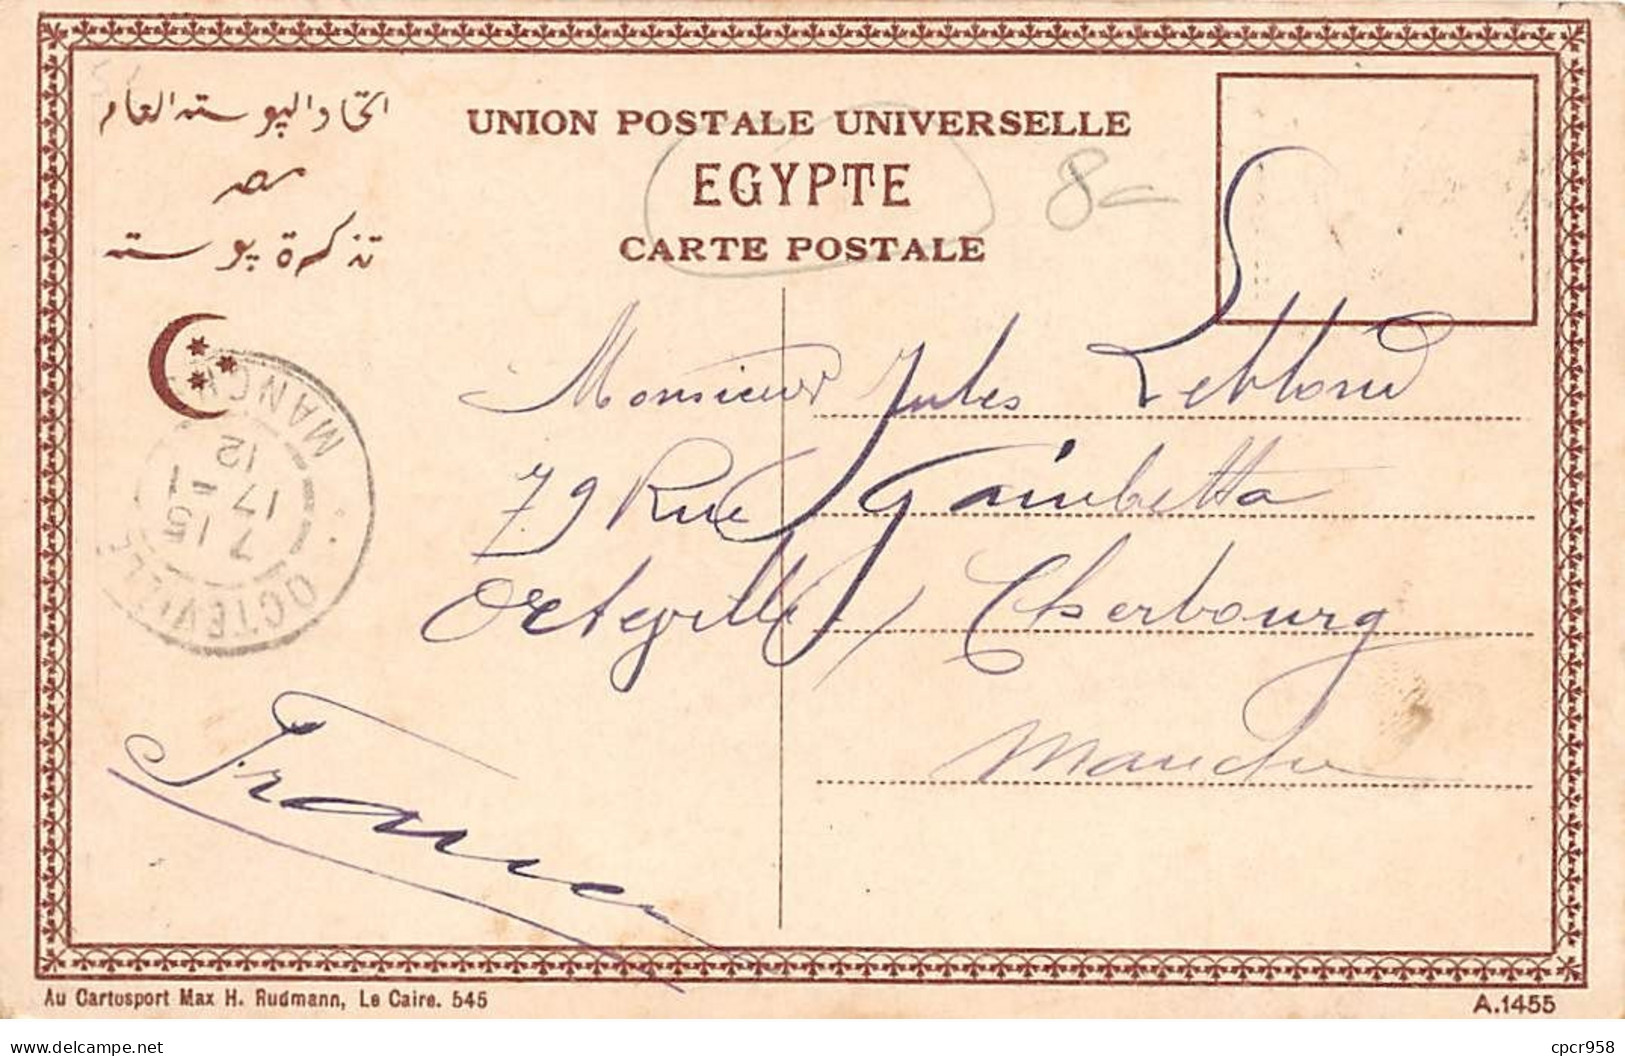 اتحاد البوسته العام
مصر
تذكرة بوسته
UNION POSTALE UNIVERSELLE
EGYPTE
CARTE POSTALE
8
MANCHE
12
17 1
7 15
OCTEVILLE
Monsieur Jules Leblond
79 Rue Gambetta
Octeville / Cherbourg
Manche
France
Au Cartosport Max H. Rudmann, Le Caire. 545
A.1455
delcampe.net
cpcr958